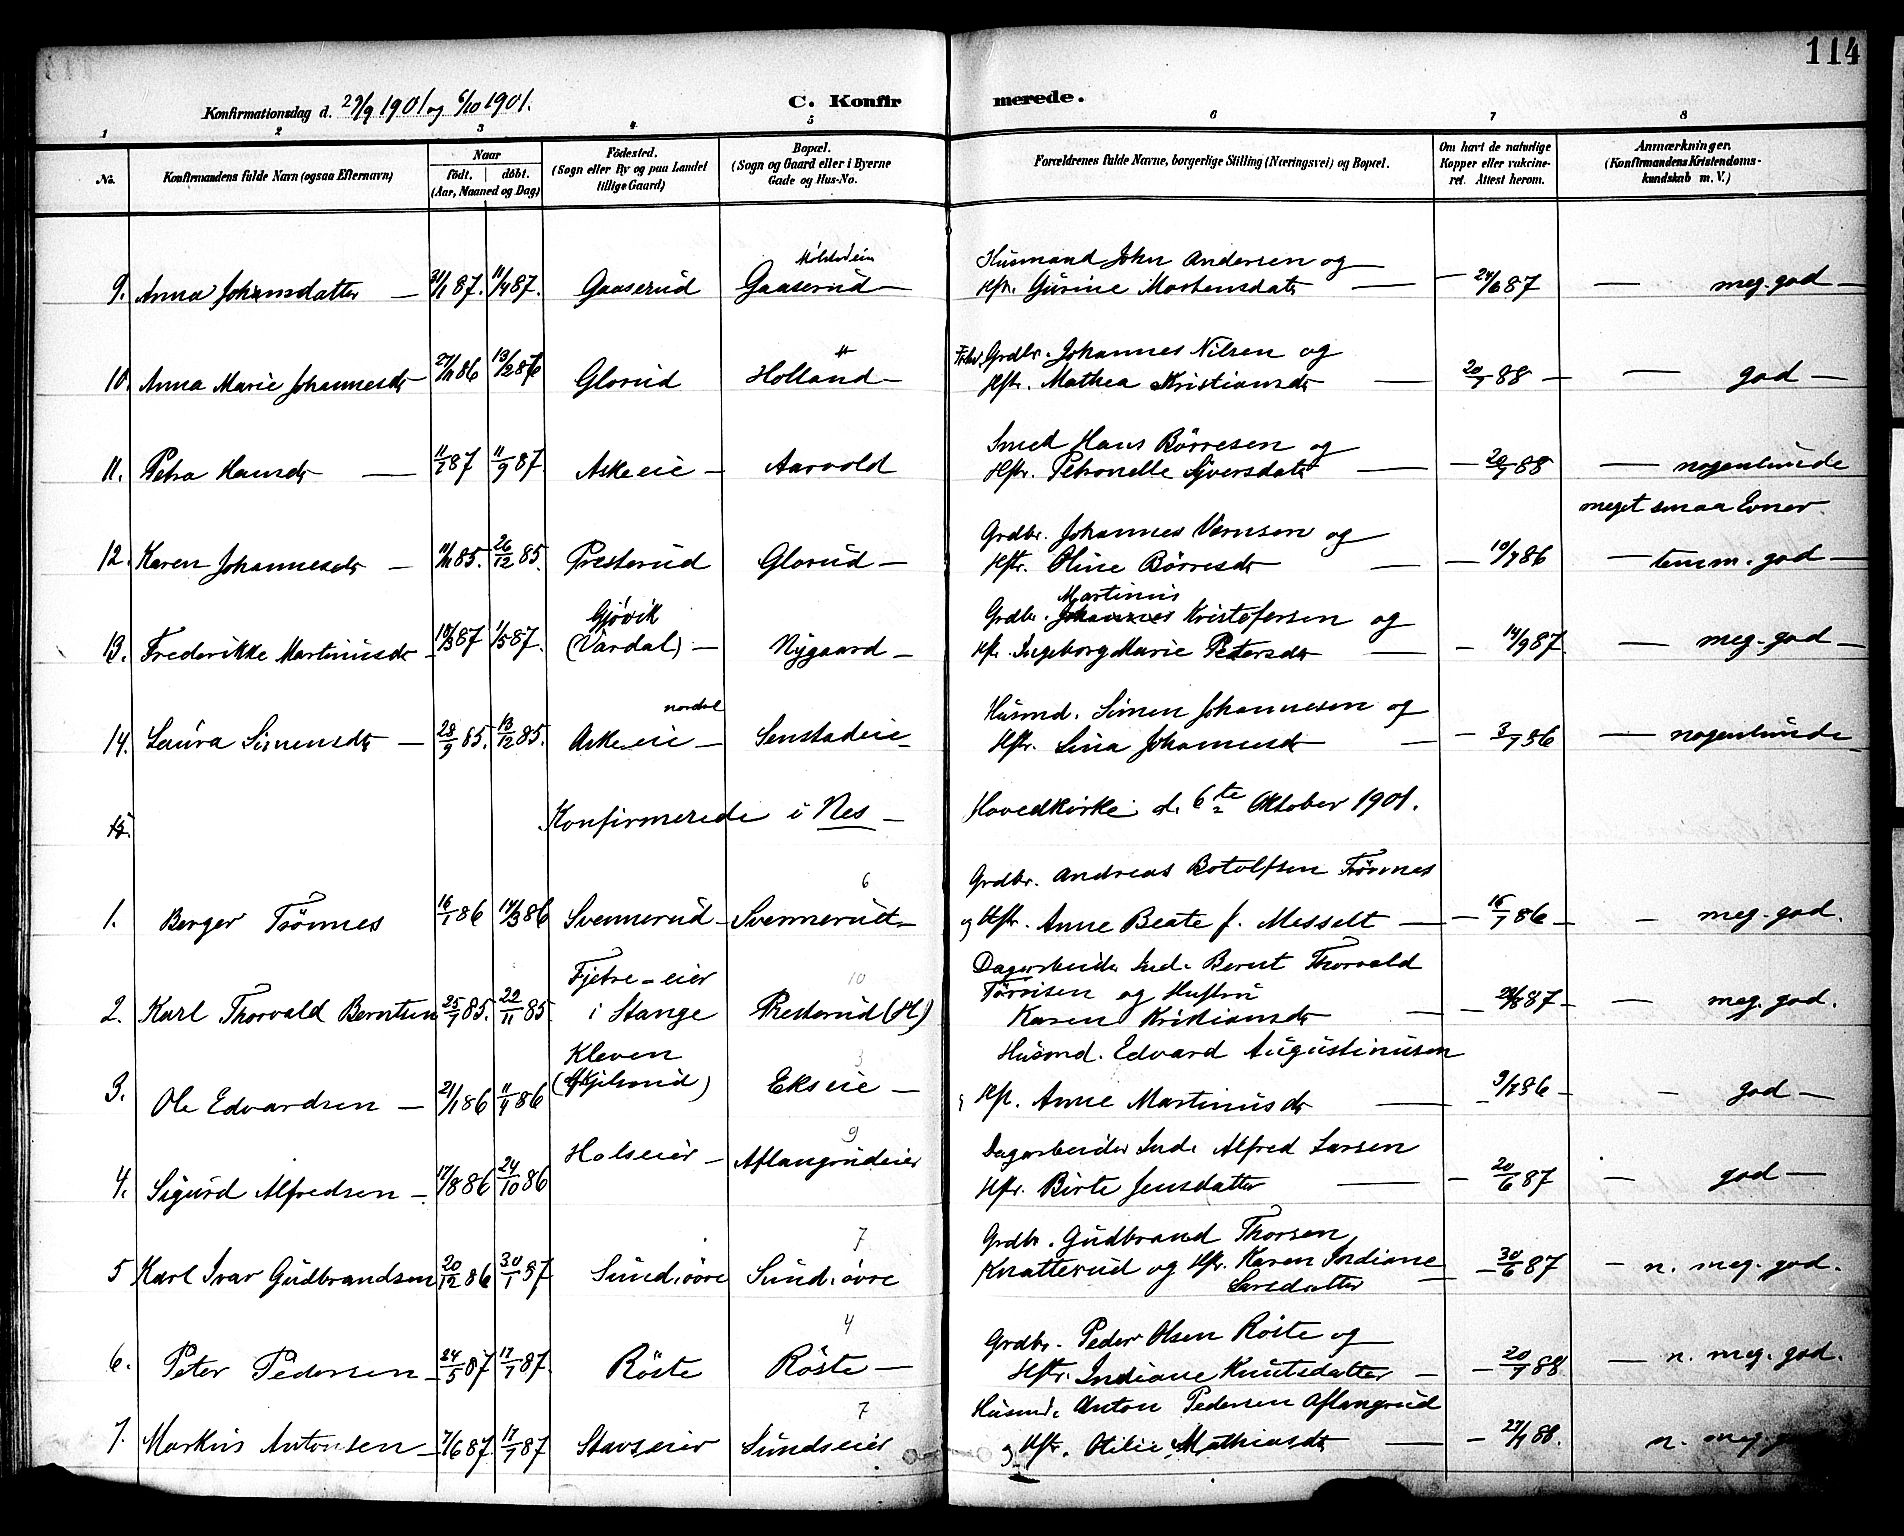 114
Konfirmationsdag d. 29/9 1901 og 6/10 1901. C. Konfirmerede.
1 2 3 4 5 6 7 8
No. Konfirmandens fulde Navn (ogsaa Efternavn)
Naar født. døbt. (Aar, Maaned og Dag)
Födested. (Sogn eller By og paa Landet tillige Gaard)
Bopæl. (Sogn og Gaard eller i Byerne Gade og Hus-No.
Forældrenes fulde Navne, borgerlige Stilling (Næringsvei) og Bopæl.
Om havt de naturlige Kopper eller vakcineret. Attest herom.
Anmærkninger. (Konfirmandens Kristendomskundskab m. V.)
Husmand John Andersen og
9. Anna Johansdatter 87. 11/4 87. Gaaserud Gaaserud Hstr. Gurine Mortensdatr 24/6 87 meg. god
Grdbr. Johannes Nilsen og
10. Anna Marie Johannesdr 27/11 86 Glorud Holland Hstr. Mathea Kristiansdr 20/7 88 god
Smed Hans Börresen og
11. Petra Hansdr 87 11/9 87. Askeeie Aarvold Hstr. Petronelle Syversdatr 20/7 88 nogenlunde
meget smaa Evner.
Grdbr. Johannes Arnsen og
12. Karen Johannesdr 85. 26/12 85. Presterud Glorud Hstr. Oline Börresdr 10/7 86 temm. god
Gjövik Martinus
Grdbr. Johannes Kristofersen og
13. Frederikke Martinusdr 87 1/5 87. (Vardal) Nygaard Hstr. Ingeborg Marie Petersdr 14/9 87. meg. god
nordal
Husmd. Simen Johannesen og
14. Laura Simensdr 28/9 85. 13/12 85. Askeeie Senstadeie Hstr. Lina Johannesdr 3/7 86 nogenlunde
15. Konfirmerede i Nes Hovedkirke d. 6te Oktober 1901.
6 Grdbr. Andreas Botolfsen Trönnes
1. Berger Trönnes 16/1 86 14/3 86 Svennerud Svennerud og Hstr. Anne Beate f. Messelt 15/7 86 meg. god.
Fjetre-eier 10 Dagarbeider Inds. Bernt Thorvald
Torvisen og Hustru
2. Karl Thorvald Berntsen 25/7 85. 22/11 85 i Stange Presterud (H) Karen Kristiansdr 87 meg. god.
Kleven 3 Husmd. Edvard Augustinusen
3. Ole Edvardsen 21/1 86 11/4 86 Ekseie Hstr. Anne Martinusdr 9/7 86 god
9 Dagarbeider Inds. Alfred Larsen
4. Sigurd Alfredsen 17/8 86 24/10 86 Holseier Aflangrudeier Hstr. Birte Jensdatter 20/6 87 god
7 Grdbr. Gudbrand Thorsen
5 Karl Ivar Gudbrandsen 20/12 86 30/1 87 Sund, övre Sund, övre Knatterud og Hstr. Karen Indiane 30/6 87 n. meg. god.
Larsdatter
4 Grdbr. Peder Olsen Röste og
6. Peter Pedersen 24/5 87 17/7 87. Röste Röste Hstr. Indiane Knutsdatter 20/7 88 n. meg. god.
7 Husmd. Anton Pedersen Aflangrud
7. Markus Antonsen 7/6 87. 17/7 87 Stavseier Sundseier og Hstr. Otilie Mathiasdr 27/7 88. n. meg.